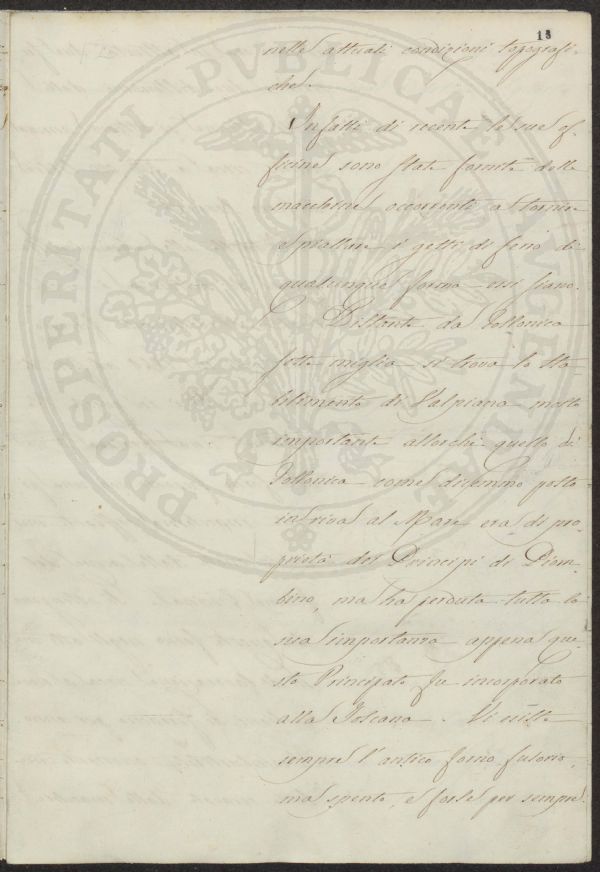 13
nelle attuali condizioni topografi-
che.
Infatti di recente le sue of-
ficine sono state fornite delle
macchine occorrenti a tornire
e piallare i getti di ferro di
qualunque forma essi siano.
Distante da Follonica
sette miglia si trova lo sta-
bilimento di Valpiana molto
importante allorchè quello di
Follonica come dicemmo posto
in riva al Mare era di pro-
prietà dei Principi di Piom-
bino, ma ha perduta tutta la
sua importanza appena que-
sto Principato fu incorporato
alla Toscana. Vi esiste
sempre l'antico forno fusorio,
ma spento, e forse per sempre.
PROSPERITATI PVBLICAE AVGENDAE